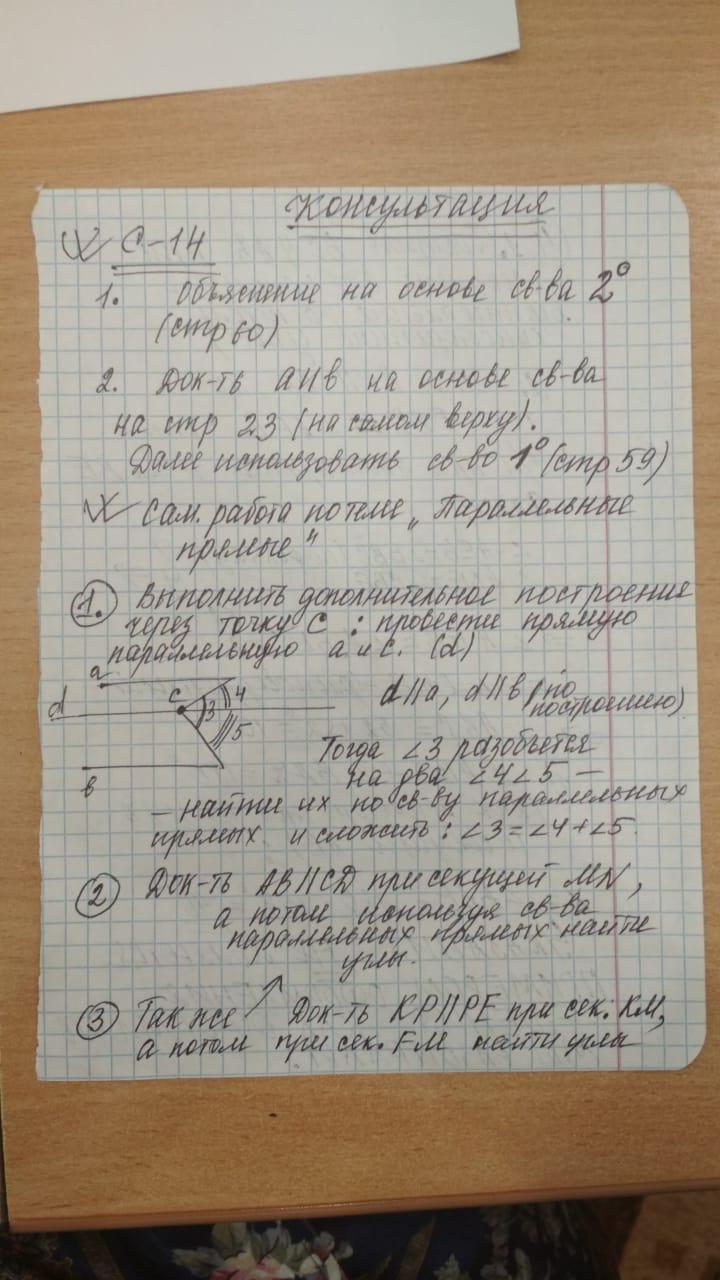 Консультация
С-14
1. Объяснение на основе св-ва 2°
(стр 60)
2. Док-ть a||b на основе св-ва
на стр 23 (на самом верху).
Далее использовать св-во 1° (стр 59)
Сам. работа по теме „Параллельные
прямые"
1. Выполнить дополнительное построение
через точку С: провести прямую
параллельную a и c. (d)
a
d
C
3
4
5
b
d||a, d||b (по
построению)
Тогда ∠3 разобьется
на два ∠4∠5 —
– найти их по св-ву параллельных
прямых и сложить: ∠3=∠4+∠5.
2 Док-ть AB||CD при секущей MN,
а потом используя св-ва
параллельных прямых найти
углы.
3 Так же ↗ Док-ть KP||PE при сек. KM,
а потом при сек. FM найти углы